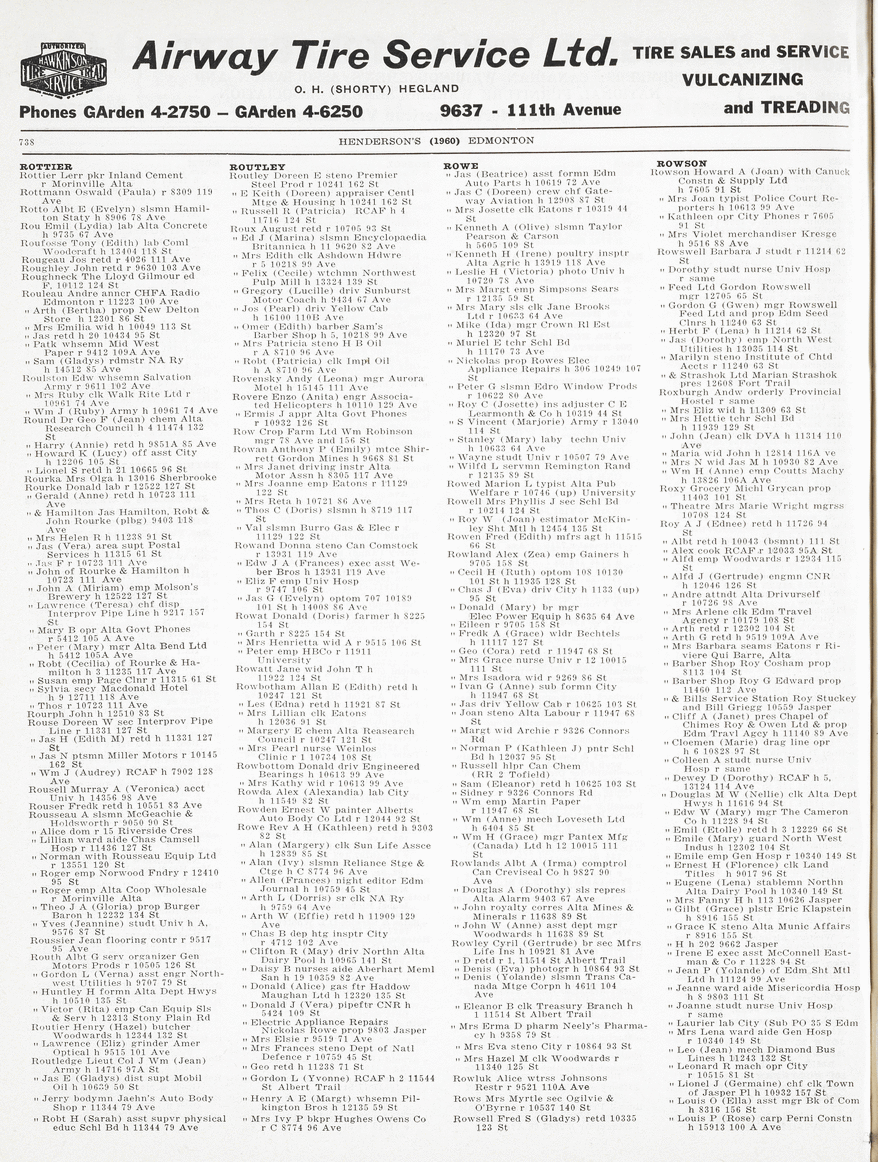 AUTHORIZED
HAWKINSON
TIRE TREAD
SERVICE
Airway Tire Service Ltd.
O. H. (SHORTY) HEGLAND
TIRE SALES and SERVICE
VULCANIZING
and TREADING
Phones GArden 4-2750 — GArden 4-6250
9637 - 111th Avenue
738
HENDERSON'S (1960) EDMONTON
ROTTIER
Rottier Lerr pkr Inland Cement
r Morinville Alta
Rottmann Oswald (Paula) r 8309 119
Ave
Rotto Albt E (Evelyn) slsmn Hamil-
ton Staty h 8906 78 Ave
Rou Emil (Lydia) lab Alta Concrete
h 9735 67 Ave
Roufosse Tony (Edith) lab Coml
Woodcraft h 13404 118 St
Rougeau Jos retd r 4026 111 Ave
Roughley John retd r 9630 103 Ave
Roughneck The Lloyd Gilmour ed
F, 10112 124 St
Rouleau Andre anncr CHFA Radio
Edmonton r 11223 100 Ave
" Arth (Bertha) prop New Delton
Store h 12301 86 St
" Mrs Emilia wid h 10049 113 St
" Jas retd h 20 10434 95 St
" Patk whsemn Mid West
Paper r 9412 109A Ave
" Sam (Gladys) rdmstr NA Ry
h 14512 85 Ave
Roulston Edw whsemn Salvation
Army r 9611 102 Ave
" Mrs Ruby clk Walk Rite Ltd r
10961 74 Ave
" Wm J (Ruby) Army h 10961 74 Ave
Round Dr Geo F (Jean) chem Alta
Research Council h 4 11474 132
St
" Harry (Annie) retd h 9851A 85 Ave
" Howard K (Lucy) off asst City
h 12206 105 St
" Lionel S retd h 21 10665 96 St
Rourka Mrs Olga h 13016 Sherbrooke
Rourke Donald lab r 12522 127 St
" Gerald (Anne) retd h 10723
111 Ave
" & Hamilton Jas Hamilton, Robt &
John Rourke (plbg) 9403 118
Ave
" Mrs Helen R h 11238 91 St
" Jas (Vera) area supt Postal
Services h 11315 61 St
" Jas F r 10723 111 Ave
" John of Rourke & Hamilton h
10723 111 Ave
" John A (Miriam) emp Molson's
Brewery h 12522 127 St
" Lawrence (Teresa) chf disp
Interprov Pipe Line h 9217 157
St
" Mary B opr Alta Govt Phones
r 5412 105 A Ave
" Peter (Mary) mgr Alta Bend Ltd
h 5412 105A Ave
" Robt (Cecilia) of Rourke & Ha-
milton h 3 11235 117 Ave
" Susan emp Page Clnr r 11315 61 St
" Sylvia secy Macdonald Hotel
h 9 12711 118 Ave
" Thos r 10723 111 Ave
Rourph John h 12510 83 St
Rouse Doreen W sec Interprov Pipe
Line r 11331 127 St
" Jas H (Edith M) retd h 11331 127
St
" Jas N ptsmn Miller Motors r 10145
162 St
" Wm J (Audrey) RCAF h 7902 128
Ave
Rousell Murray A (Veronica) acct
Univ h 14356 98 Ave
Rouser Fredk retd h 10551 83 Ave
Rousseau A slsmn McGeachie &
Holdsworth r 9050 90 St
" Alice dom r 15 Riverside Cres
" Lillian ward aide Chas Camsell
Hosp r 11436 127 St
" Norman with Rousseau Equip Ltd
r 13551 120 St
" Roger emp Norwood Fndry r 12410
95 St
" Roger emp Alta Coop Wholesale
r Morinville Alta
" Theo J A (Gloria) prop Burger
Baron h 12232 134 St
" Yves (Jeannine) studt Univ h A,
9576 87 St
Roussier Jean flooring contr r 9517
95 Ave
Routh Albt G serv organizer Gen
Motors Prods r 10505 126 St
" Gordon L (Verna) asst engr North-
west Utilities h 9707 79 St
" Huntley H formn Alta Dept Hwys
h 10510 135 St
" Victor (Rita) emp Can Equip Sls
& Serv h 12313 Stony Plain Rd
Routier Henry (Hazel) butcher
Woodwards h 12344 132 St
" Lawrence (Eliz) grinder Amer
Optical h 9515 101 Ave
Routledge Lieut Col J Wm (Jean)
Army h 14716 97A St
" Jas E (Gladys) dist supt Mobil
Oil h 10639 50 St
" Jerry bodymn Jaehn's Auto Body
Shop r 11344 79 Ave
" Robt H (Sarah) asst supvr physical
educ Schl Bd h 11344 79 Ave
ROUTLEY
Routley Doreen E steno Premier
Steel Prod r 10241 162 St
" E Keith (Doreen) appraiser Centl
Mtge & Housing h 10241 162 St
" Russell R (Patricia) RCAF h 4
11716 124 St
Roux August retd r 10705 93 St
" Ed J (Marina) slsmn Encyclopaedia
Britannica h 11 9620 82 Ave
" Mrs Edith clk Ashdown Hdwre
r 5 10218 99 Ave
" Felix (Cecile) wtchmn Northwest
Pulp Mill h 13324 139 St
" Gregory (Lucille) driv Sunburst
Motor Coach h 9434 67 Ave
" Jos (Pearl) driv Yellow Cab
h 16100 110B Ave
" Omer (Edith) barber Sam's
Barber Shop h 5, 10218 99 Ave
" Mrs Patricia steno H B Oil
r A 8710 96 Ave
" Robt (Patricia) clk Impl Oil
h A 8710 96 Ave
Rovensky Andy (Leona) mgr Aurora
Motel h 15145 111 Ave
Rovere Enzo (Anita) engr Associa-
ted Helicopters h 10110 129 Ave
" Ermis J appr Alta Govt Phones
r 10932 126 St
Row Crop Farm Ltd Wm Robinson
mgr 78 Ave and 156 St
Rowan Anthony P (Emily) mtce Shir-
rett Gordon Mines h 9668 81 St
" Mrs Janet driving instr Alta
Motor Assn h 8305 117 Ave
" Mrs Joanne emp Eatons r 11129
122 St
" Mrs Reta h 10721 86 Ave
" Thos C (Doris) slsmn h 8719 117
St
" Val slsmn Burro Gas & Elec r
11129 122 St
Rowand Donna steno Can Comstock
r 13931 119 Ave
" Edw J A (Frances) exec asst We-
ber Bros h 13931 119 Ave
" Eliz F emp Univ Hosp
r 9747 106 St
" Jas G (Evelyn) optom 707 10189
101 St h 14008 86 Ave
Rowat Donal (Doris) farmer h 8225
154 St
" Garth r 8225 154 St
" Mrs Henrietta wid A r 9515 106 St
" Peter emp HBCo r 11911
University
Rowatt Jane wid John T h
11922 124 St
Rowbotham Allan E (Edith) retd h
10247 121 St
" Les (Edna) retd h 11921 87 St
" Mrs Lillian clk Eatons
h 12036 91 St
" Margery E chem Alta Reasearch
Council r 10247 121 St
" Mrs Pearl nurse Weinlos
Clinic r 1 10734 108 St
Rowbottom Donald driv Engineered
Bearings h 10613 99 Ave
" Mrs Kathy wid r 10613 99 Ave
Rowda Alex (Alexandia) lab City
h 11549 82 St
Rowden Ernest W painter Alberts
Auto Body Co Ltd r 12044 92 St
Rowe Rev A H (Kathleen) retd h 9303
82 St
" Alan (Margery) clk Sun Life Assce
h 12839 85 St
" Alan (Ivy) slsmn Reliance Stge &
Ctge h C 8774 96 Ave
" Allen (Frances) night editor Edm
Journal h 10759 45 St
" Arth L (Dorris) sr clk NA Ry
h 9759 64 Ave
" Arth W (Effie) retd h 11909 129
Ave
" Chas B dep htg insptr City
r 4712 102 Ave
" Clifton R (May) driv Northn Alta
Dairy Pool h 10965 141 St
" Daisy B nurses aide Aberhart Meml
San h 19 10359 82 Ave
" Donald (Alice) gas ftr Haddow
Maughan Ltd h 12320 135 St
" Donald J (Vera) pipeftr CNR h
5424 109 St
" Electric Appliance Repairs
Nickolas Rowe prop 9803 Jasper
" Mrs Elsie r 9519 71 Ave
" Mrs Frances steno Dept of Natl
Defence r 10759 45 St
" Geo retd h 11238 71 St
" Gordon L (Yvonne) RCAF h 2 11544
St Albert Trail
" Henry A E (Margt) whsemn Pil-
kington Bros h 12135 59 St
" Mrs Ivy P bkpr Hughes Owens Co
r C 8774 96 Ave
ROWE
" Jas (Beatrice) asst formn Edm
Auto Parts h 10619 72 Ave
" Jas C (Doreen) crew chf Gate-
way Aviation h 12908 87 St
" Mrs Josette clk Eatons r 10319 44
St
" Kenneth A (Olive) slsmn Taylor
Pearson & Carson
h 5605 109 St
" Kenneth H (Irene) poultry insptr
Alta Agric h 13919 118 Ave
" Leslie H (Victoria) photo Univ h
10720 78 Ave
" Mrs Margt emp Simpsons Sears
r 12135 59 St
" Mrs Mary sls clk Jane Brooks
Ltd r 10633 64 Ave
" Mike (Ida) mgr Crown Rl Est
h 12320 97 St
" Muriel E tchr Schl Bd
h 11170 73 Ave
" Nickolas prop Rowes Elec
Appliance Repairs h 306 10249 107
St
" Peter G slsmn Edro Window Prods
r 10622 80 Ave
" Roy C (Josette) ins adjuster C E
Learmonth & Co h 10319 44 St
" S Vincent (Marjorie) Army r 13040
114 St
" Stanley (Mary) laby techn Univ
h 10633 64 Ave
" Wayne studt Univ r 10507 79 Ave
" Wilfd L servmn Remington Rand
r 12135 89 St
Rowed Marion L typist Alta Pub
Welfare r 10746 (up) University
Rowell Mrs Phyllis J sec Schl Bd
r 10214 124 St
" Roy W (Joan) estimator McKin-
ley Sht Mtl h 12454 135 St
Rowen Fred (Edith) mfrs agt h 11515
66 St
Rowland Alex (Zea) emp Gainers h
9705 158 St
" Cecil H (Ruth) optom 108 10130
101 St h 11935 128 St
" Chas J (Eva) driv City h 1133 (up)
95 St
" Donald (Mary) br mgr
Elec Power Equip h 8635 64 Ave
" Eileen r 9705 158 St
" Fredk A (Grace) wldr Bechtels
h 11117 127 St
" Geo (Cora) retd r 11947 68 St
" Mrs Grace nurse Univ r 12 10015
111 St
" Mrs Isadora wid r 9269 86 St
" Ivan G (Anne) sub formn City
h 11947 68 St
" Jas driv Yellow Cab r 10625 103 St
" Joan steno Alta Labour r 11947 68
St
" Margt wid Archie r 9326 Connors
Rd
" Norman P (Kathleen J) pntr Schl
Bd h 12037 95 St
" Russell hlpr Can Chem
(RR 2 Tofield)
" Sam (Eleanor) retd h 10625 103 St
" Sidney r 9326 Connors Rd
" Wm emp Martin Paper
r 11947 68 St
" Wm (Anne) mech Loveseth Ltd
h 6404 85 St
" Wm H (Grace) mgr Pantex Mfg
(Canada) Ltd h 12 10015 111
St
Rowlands Albt A (Irma) comptrol
Can Creviseal Co h 9827 90
Ave
" Douglas A (Dorothy) sls repres
Alta Alarm 9403 67 Ave
" John royalty corres Alta Mines &
Minerals r 11638 89 St
" John W (Anne) asst dept mgr
Woodwards h 11638 89 St
Rowley Cyril (Gertrude) br sec Mfrs
Life Ins h 10921 81 Ave
" D retd r 1, 11514 St Albert Trail
" Denis (Eva) photogr h 10864 93 St
" Denis (Yolande) slsmn Trans Ca-
nada Mtge Corpn h 4611 104
Ave
" Eleanor B clk Treasury Branch h
1 11514 St Albert Trail
" Mrs Erma D pharm Neely's Pharma-
cy h 9358 79 St
" Mrs Eva steno City r 10864 93 St
" Mrs Hazel M clk Woodwards r
11340 125 St
Rowluk Alice wtrss Johnsons
Restr r 9521 110A Ave
Rows Mrs Myrtle sec Ogilvie &
O'Byrne r 10537 140 St
Rowsell Fred S (Gladys) retd 10335
123 St
ROWSON
Rowson Howard A (Joan) with Canuck
Constn & Supply Ltd
h 7605 91 St
" Mrs Joan typist Police Court Re-
porters h 10613 99 Ave
" Kathleen opr City Phones r 7605
91 St
" Mrs Violet merchandiser Kresge
h 9516 88 Ave
Rowswell Barbara J studt r 11214 62
St
" Dorothy studt nurse Univ Hosp
r same
" Feed Ltd Gordon Rowswell
mgr 12705 65 St
" Gordon G (Gwen) mgr Rowswell
Feed Ltd and prop Edm Seed
Clnrs h 11240 63 St
" Herbt F (Lena) h 11214 62 St
" Jas (Dorothy) emp North West
Utilities h 13035 114 St
" Marilyn steno Institute of Chtd
Accts r 11240 63 St
" & Strashok Ltd Marian Strashok
pres 12608 Fort Trail
Roxburgh Andw orderly Provincial
Hostel r same
" Mrs Eliz wid h 11309 63 St
" Mrs Hettie tchr Schl Bd
h 11939 129 St
" John (Jean) clk DVA h 11314 110
Ave
" Maria wid John h 12814 116A ve
" Mrs N wid Jas M h 10930 82 Ave
" Wm H (Anne) emp Coutts Machy
h 13826 106A Ave
Roxy Grocery Michl Grycan prop
11403 101 St
" Theatre Mrs Marie Wright mgrss
10708 124 St
Roy A J (Ednee) retd h 11726 94
St
" Albt retd h 10043 (bsmnt) 111 St
" Alex cook RCAF r 12033 95A St
" Alfd emp Woodwards r 12934 115
St
" Alfd J (Gertrude) engmn CNR
h 12046 126 St
" Andre attndt Alta Drivurself
r 10726 98 Ave
" Mrs Arlene clk Edm Travel
Agency r 10179 108 St
" Arth retd r 12202 104 St
" Arth G retd h 9519 109A Ave
" Mrs Barbara seams Eatons r Ri-
viere Qui Barre, Alta
" Barber Shop Roy Cosham prop
8113 104 St
" Barber Shop Roy G Edward prop
11460 112 Ave
" & Bills Service Station Roy Stuckey
and Bill Griegg 10559 Jasper
" Cliff A (Janet) pres Chapel of
Chimes Roy & Owen Ltd & prop
Edm Travl Agcy h 11140 89 Ave
" Cloemen (Marie) drag line opr
h 6 10828 97 St
" Colleen A studt nurse Univ
Hosp r same
" Dewey D (Dorothy) RCAF h 5,
13124 114 Ave
" Douglas M W (Nellie) clk Alta Dept
Hwys h 11616 94 St
" Edw W (Mary) mgr The Cameron
Co h 11228 94 St
" Emil (Etolle) retd h 3 12229 66 St
" Emile (Mary) guard North West
Indus h 12302 104 St
" Emile emp Gen Hosp r 10340 149 St
" Ernest H (Florence) clk Land
Titles h 9017 96 St
" Eugene (Lena) stablemn Northn
Alta Dairy Pool h 10340 149 St
" Mrs Fanny H h 113 10626 Jasper
" Gilbt (Grace) plstr Eric Klapstein
h 8916 155 St
" Grace K steno Alta Munic Affairs
r 8916 155 St
" H h 202 9662 Jasper
" Irene E exec asst McConnell East-
man & Co r 11228 94 St
" Jean P (Yolande) of Edm Sht Mtl
Ltd h 11124 99 Ave
" Jeanne ward aide Misericordia Hosp
h 8 9803 111 St
" Joanne studt nurse Univ Hosp
r same
" Laurier lab City (Sub PO 35 S Edm
" Mrs Lena ward aide Gen Hosp
r 10340 149 St
" Leo (Jean) mech Diamond Bus
Lines h 11243 132 St
" Leonard R mach opr City
r 10515 81 St
" Lionel J (Germaine) chf clk Town
of Jasper Pl h 10932 157 St
" Louis O (Ella) asst mgr Bk of Com
h 8316 156 St
" Louis P (Rose) carp Perni Constn
h 15913 100 A Ave